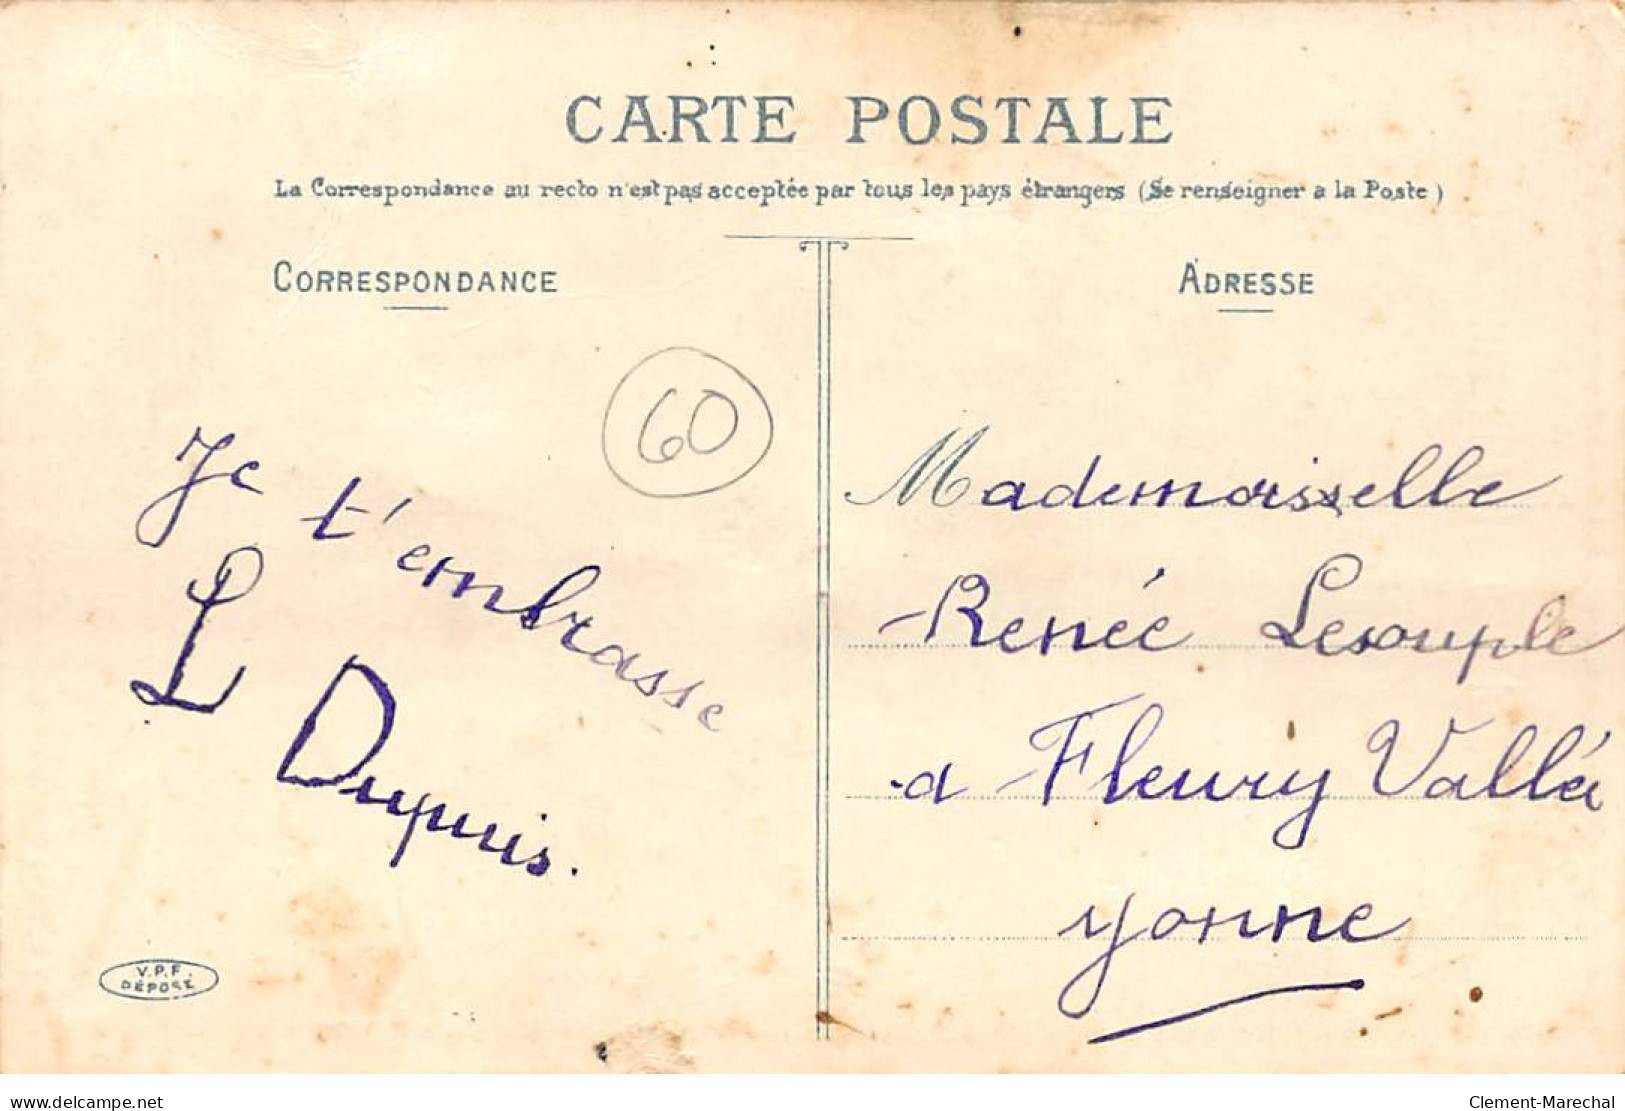 CARTE POSTALE
La Correspondance au recto n'est pas acceptée par tous les pays étrangers (Se renseigner a la Poste)
CORRESPONDANCE
60
Je t'embrasse
L Dupuis.
V.P.F.
DÉPOSÉ
ADRESSE
Mademoisselle
Renée Lesouple
a Fleury Vallée
yonne
delcampe.net
Clement-Marechal